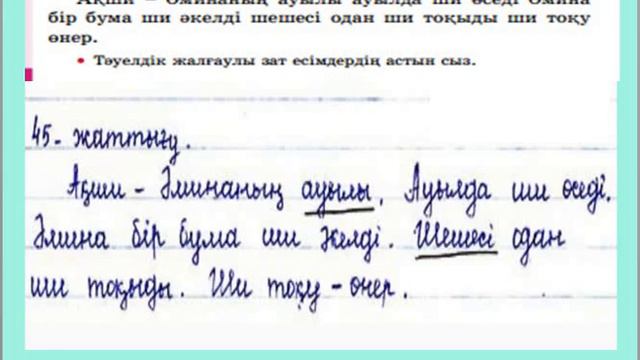 Ақши – Әминаның ауылы ауылда ши өседі Әмина
бір бума ши әкелді шешесі одан ши тоқыды ши тоқу
өнер.
• Тәуелдік жалғаулы зат есімдердің астын сыз.
45- жаттығу.
Ақши - Әминаның ауылы. Ауылда ши өседі.
Әмина бір бума ши әкелді. Шешесі одан
ши тоқыды. Ши тоқу - өнер.